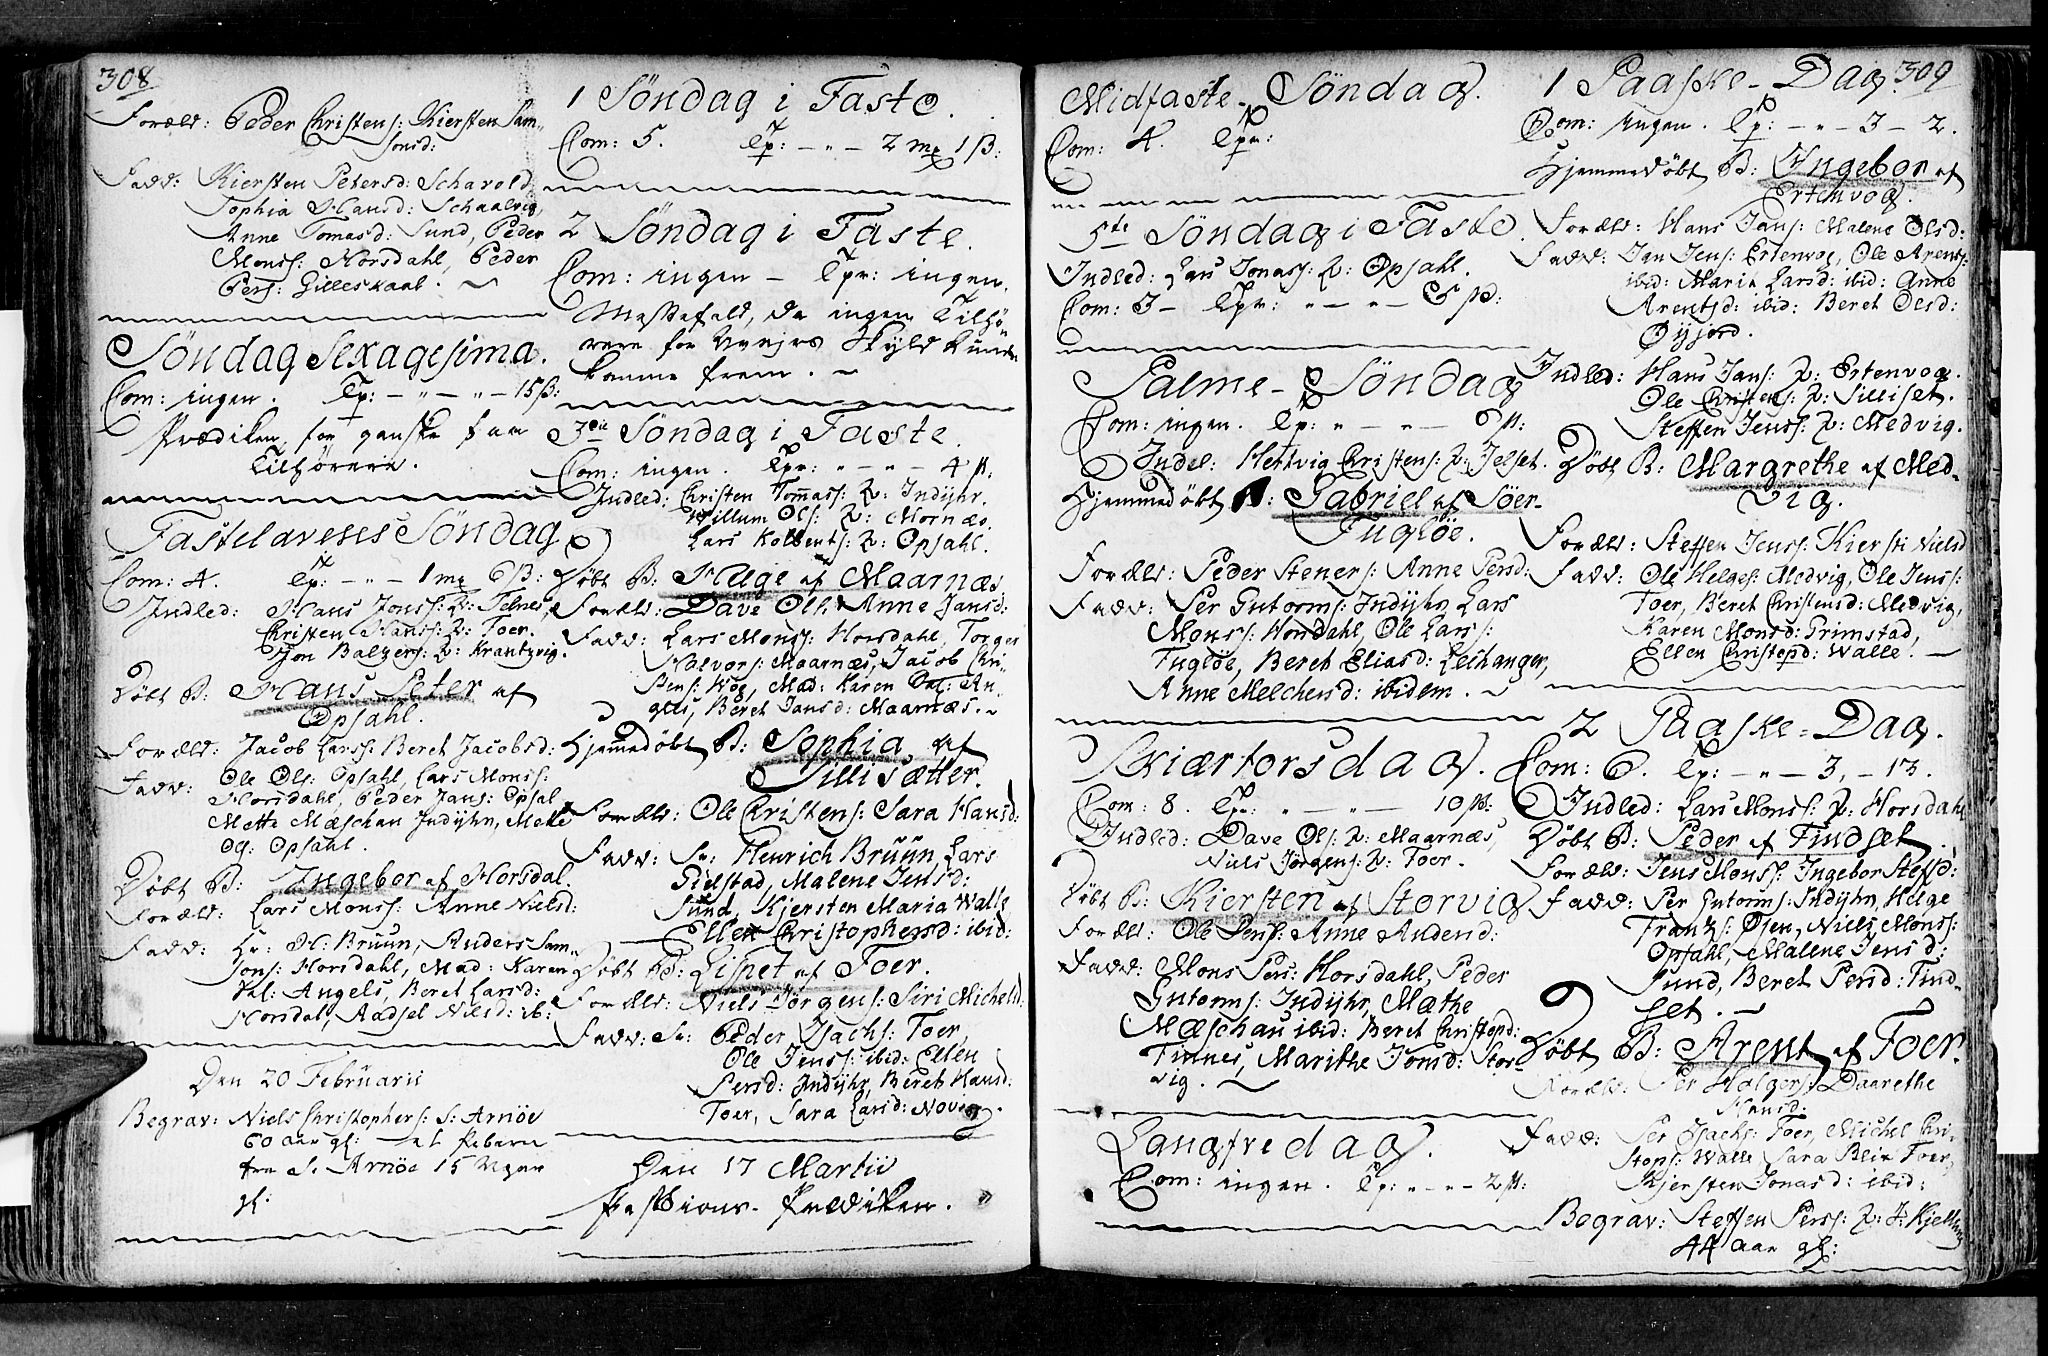 308
Foræld: Peder Christens: Kiersten Sam-
sonsd:
Fadd: Kiersten Petersd: Scharold
Sophia Hansd: Schaalvig,
Anne Tomasd: Sund, Peder
Monss: Norsdahl, Peder
Pers: Gilleskaal.
Søndag Sexagesima.
Com: ingen. Tp: - " - " - 15 ß:
Prædiken for ganske faa
Tilhørere.
Fastelavens Søndag
Com: 4. Tp: - " - 1 mx 6 ß:
Indled: Hans Jonss: Q: Telnes,
Christen Hanss: Q: Foer.
Jon Balzers: Q: Krantzvig.
Døbt B: Hans Peter af
Opsahl.
Foræld: Jacob Larss: Beret Jacobsd:
Fadd: Ole Ols: Opsahl, Lars Monss:
Horsdahl, Peder Jans: Opsal
Mette Mæschau Indijhr, Mette
Og: Opsahl.
Døbt B: Ingebor af Horsdal
Foræld: Lars Monss: Anne Nielsd:
Fadd: Hr: H: Bruun, Anders Sam-
sons: Horsdahl, Mad: Karen
Angels, Beret Larsd:
Horsdal, Aadsel Nilsd: ib:
Den 20 Februarii
Begrav: Niels Christophers: S: Arnöe
60 aar gl: et Pebarn
fra S. Arnöe 15 Uger
gl:
1 Søndag i Faste.
Com: 5. Tp: - " - 2 mx 1 ß:
2 Søndag i Faste.
Com: ingen - Tpr: ingen.
Messefald, da ingen Tilhø-
rere for Uvejrs Skyld kunde
komme frem.
3die Søndag i Faste.
Com: ingen. Tpr: " - " - 4 ß:
Indled: Christen Tomass: Q: Indijhr.
Willum Ols: Q: Mornæs.
Lars Kolbents: Q: Opsahl.
Døbt B: Huge af Maarnæs
Foræld: Dave Ols: Anne Jansd:
Fadd: Lars Monss: Horsdahl, Torger
Halvors: Maarnæs, Jacob Chri-
stens: Wog, Mad: Karen An-
gels, Beret Jansd: Maarnæs.
Hjemmedøbt B: Sophia af
Sillisætter.
Foræld: Ole Christens: Sara Hansd:
Fadd: Sr: Henrich Bruun, Lars
Gidstad, Malene Jensd:
Sund, Kjersten Maria Walle,
Ellen Christophersd: ibid:
Døbt B: Lisbet af Foer.
Foræld: Niels Jørgens: Siri Michelsd:
Fadd: Sr: Peder Isachs: Foer,
Ole Jenss: ibid: Ellen
Persd: Indijhr, Beret Hansd:
Foer, Sara Larsd: Novig.
Den 17 Martii
Passions-Prædiken.
Midfaste-Søndag.
Com: 4. Tpr:
5te Søndag i Faste.
Indled: Lars Jonass: Q: Opsahl.
Com: 3 - Tpr: " - " - 6 ß:
Palme-Søndag
Com: ingen. Tp: " - " - 6 ß:
Indel: Hettvig Christens: Q: Jelset.
Hjemmedøbt B: Gabriel af Söer-
Fuglöe.
Foræld: Peder Steners: Anne Persd:
Fadd: Per Gutorms: Indijhr, Lars
Monss: Horsdahl, Ole Larss:
Fuglöe, Beret Eliasd: Lethanger,
Anne Melchersd: ibidem.
Skiærtorsdag.
Com: 8. Tpr: " - " - 10 ß:
Indled: Dave Ols: Q: Maarnæs,
Niels Jörgens: Q: Foer.
Døbt B: Kiersten af Storvig
Foræld: Ole Jens: Anne Andersd:
Fadd: Mons Pers: Horsdahl, Peder
Gutorms: Indijhr, Mæthe
Mæschau ibid: Beret Christopd:
Finnes, Marithe Jonsd: Stor-
vig.
Langfredag.
Com: ingen. Tp: " - " - 2 ß:
1 Paaske-Dag. 309
Com: Ingen. Tp: - " - 3 - 2.
Hjemmedøbt B: Ingebor af
Ertenvog.
Foræld: Hans Jans: Malene Olsd:
Fadd: Jan Jens: Ertenvog, Ole Arents:
ibid: Maria Larsd: ibid: Anne
Arentsd: ibid: Beret Desd:
Öyjord.
Indled: Hans Jans: Q: Ertenvog.
Ole Christens: Q: Silliset.
Steffen Jenss: Q: Medvig.
Døbt B: Margrethe af Med-
vig.
Foræld: Steffen Jenss: Kiersti Nielsd
Fadd: Ole Helges: Medvig, Ole Jenss:
Foer, Beret Christensd: Medvig,
Karen Monsd: Grimstad,
Ellen Christopd: Walle.
2 Paaske-Dag.
Com: 6. Tp: - " - 3, - 13.
Indled: Lars Monss: Q: Horsdahl
Døbt B: Peder af Findset
Foræld: Jens Monss: Ingebor Steffd:
Fadd: Per Gutorms: Indijhr, Helge
Frantz: Osen, Niels Monss:
Opsahl, Malene Jensd:
Sund, Beret Persd: Find-
set.
Døbt B: Arent af Foer.
Foræld: Per Holgers: Daarethe
Hansd:
Fadd: Per Isachs: Foer, Michel Chri-
stops: Walle, Sara Blix Foer,
Kjersten Jonasd: ibid:
Begrav: Steffen Perss: Q:
44 aar gl: